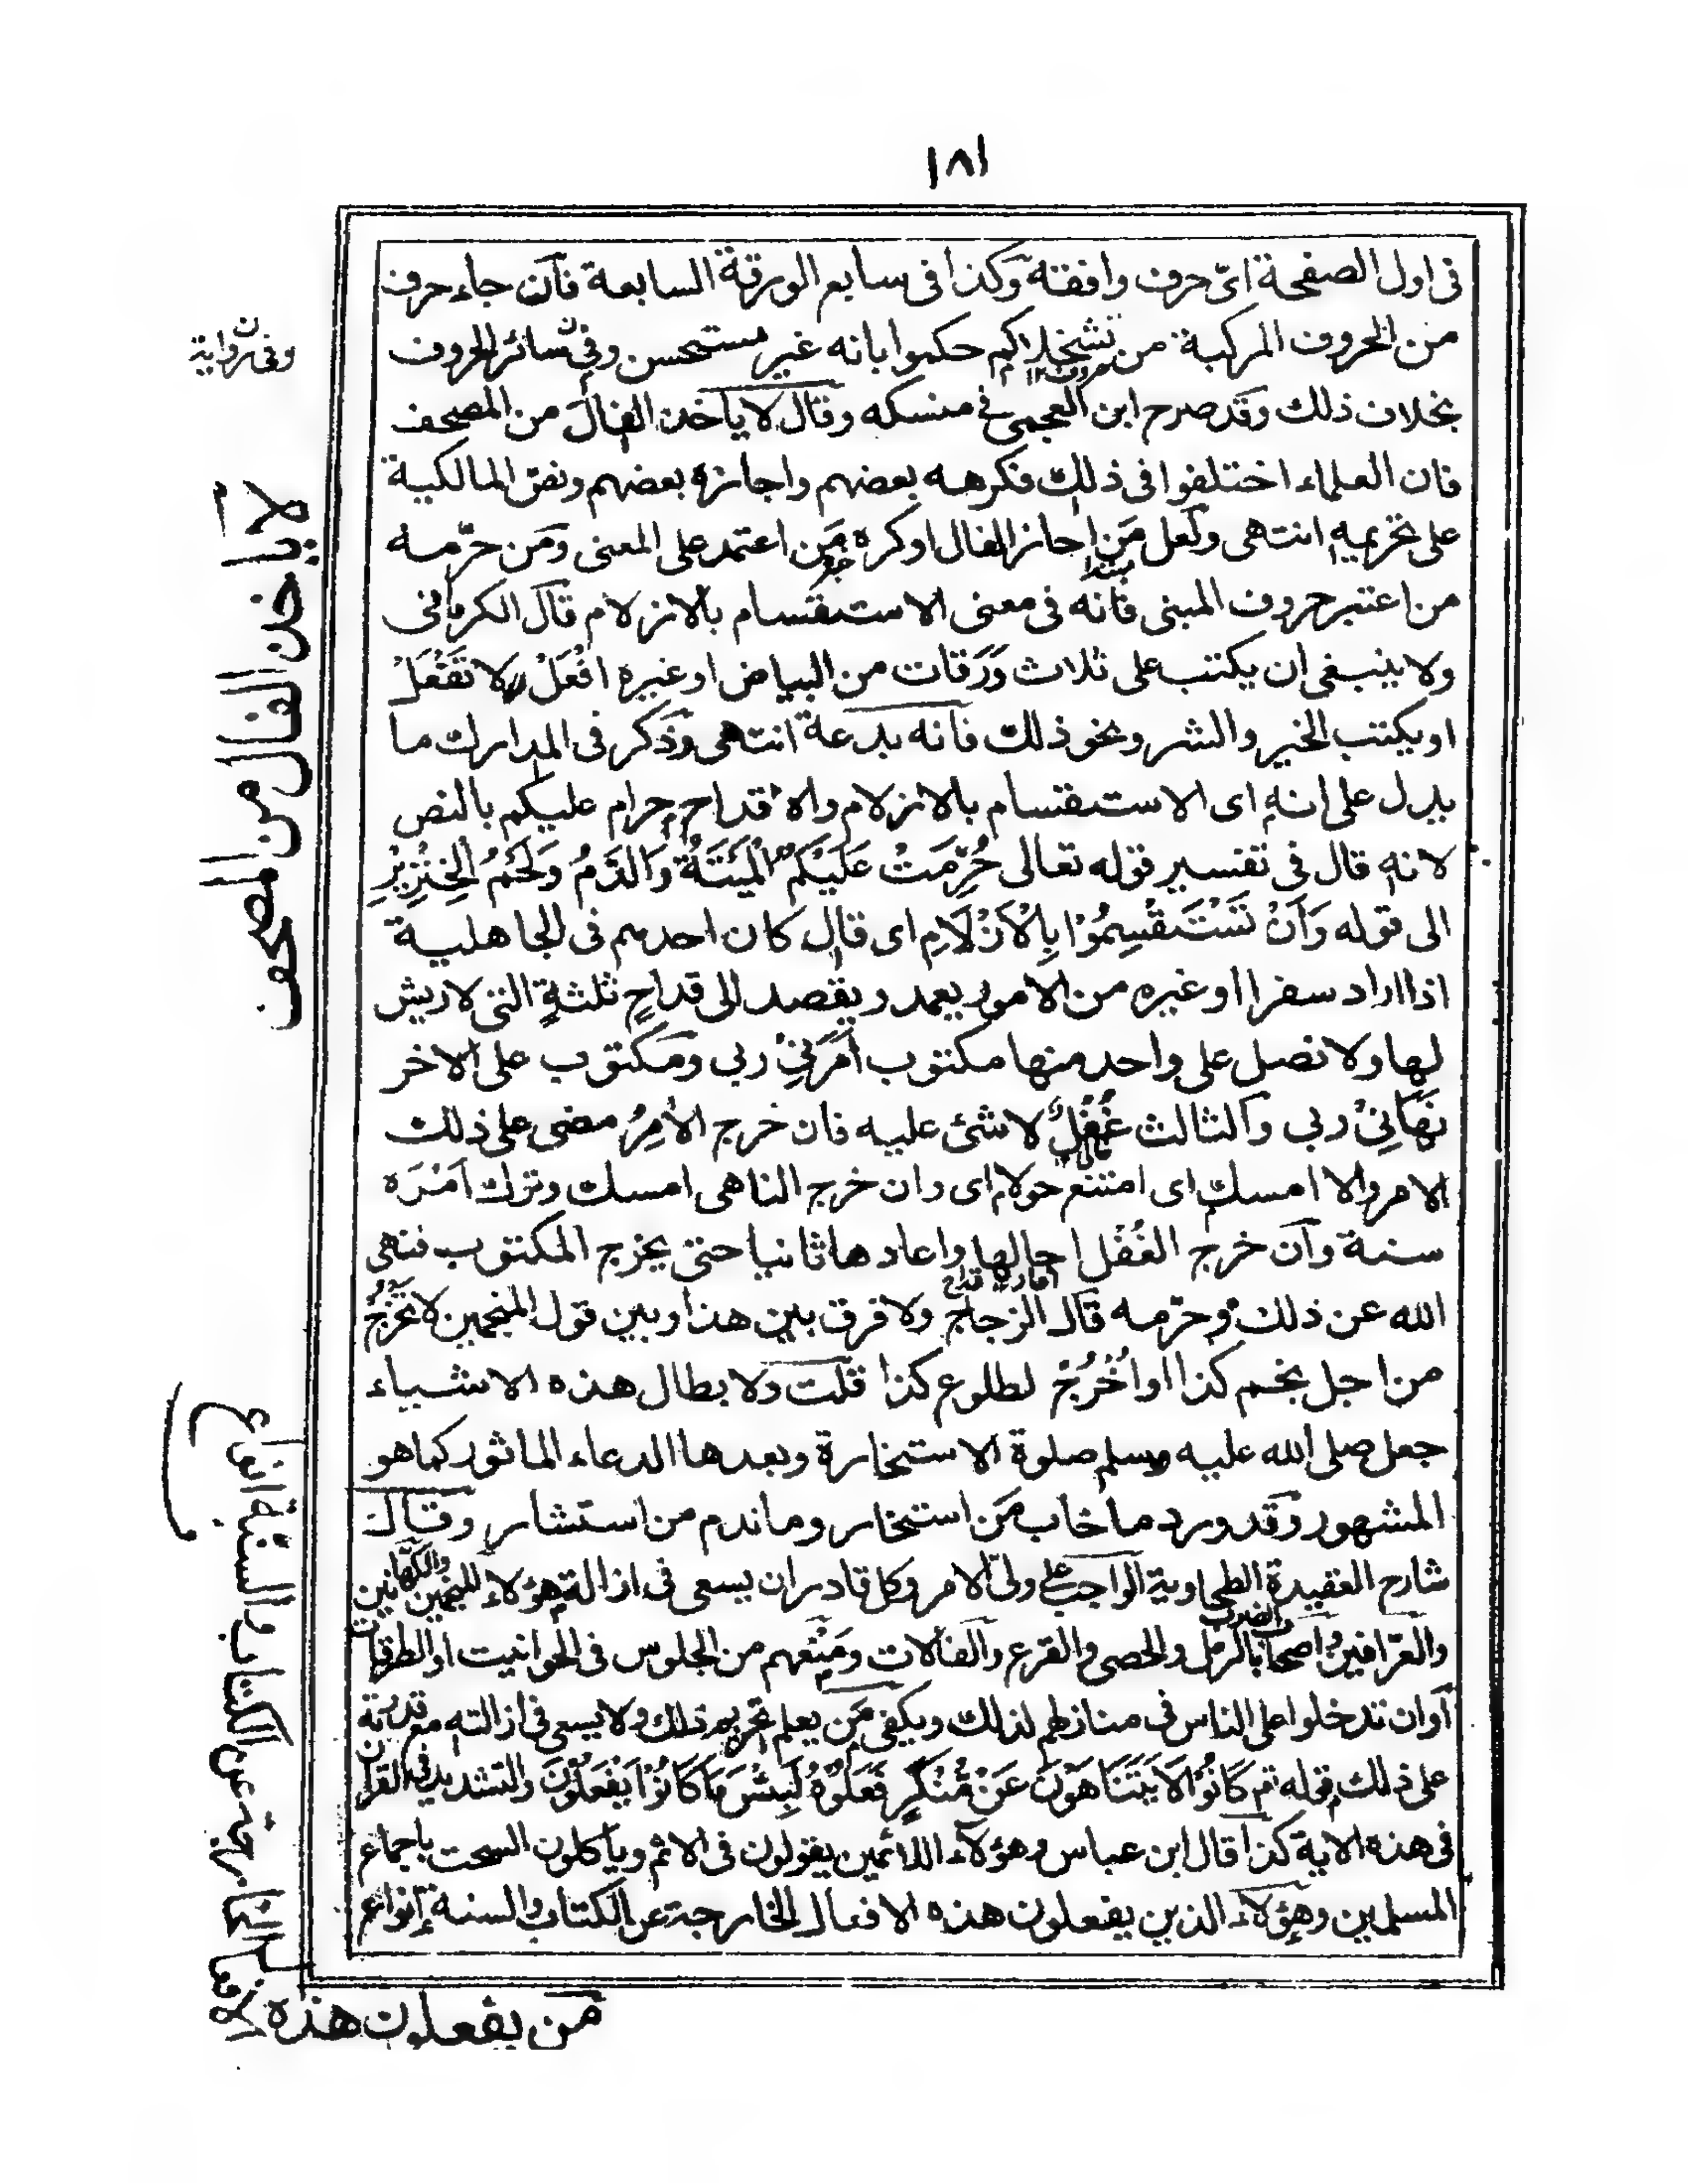 ١٨١
فى اول الصفحة اىّ حرف وافقه وكذا فى سابع الورقة السابعة فان جاء حرف
من الحروف المركبة من تشخلاكم حكموا بانه غير مستحسن وفى سائر الحروف
وفى رواية
بخلاف ذلك وقد صرح ابن العجمى فى منسكه وقال لا ياخذ الفال من المصحف
فان العلماء اختلفوا فى ذلك فكرهه بعضهم واجازه بعضهم ونصّ المالكية
على تحريمه انتهى ولعل مَن اجاز الفال اوكره مَن اعتمد على المعنى ومَن حرّمه
مبتدا
خبر
من اعتبر حروف المبنى فانه فى معنى الاستقسام بالازلام قال الكرمانى
ولا ينبغى ان يكتب على ثلاث وَرَقات من البياض او غيره افْعَلْ ولا تَفْعَلْ
او يكتب الخير والشر ونحو ذلك فانه بدعة انتهى وذكر فى المدارك ما
يدل على انه اى الاستقسام بالازلام والاقداح حرام عليكم بالنص
لانه قال فى تفسير قوله تعالى حُرِّمَتْ عَلَيْكُمُ الْمَيْتَةُ وَالدَّمُ وَلَحْمُ الْخِنْزِيْرِ
الى قوله وَاَنْ تَسْتَقْسِمُوْا بِالْاَزْلَامِ اى قال كان احدهم فى الجاهلية
اذا اراد سفرا او غيره من الامور يعمد ويقصد الى قداحٍ ثلثةٍ التى لاريش
لها ولا نصل على واحد منها مكتوب اَمَرَنِىْ ربى ومكتوب على الاخر
نَهَانِىْ ربى والثالث غُفْلٌ لاشئ عليه فان خرج الآمِرُ مضى على ذلك
الامر والا امسك اى امتنع حولا اى وان خرج الناهى امسك وترك اَمْرَه
سنة وان خرج الغُفْل اجالها واعادها ثانيا حتى يخرج المكتوب فنهى
الله عن ذلك وحرّمه قال الزجاج ولا فرق بين هذا وبين قول المنجمين لا تَخْرُجْ
من اجل نجم كذا او اُخْرُجْ لطلوع كذا قلت ولا بطال هذه الاشياء
جعل صلى الله عليه وسلم صلوة الاستخارة وبعدها الدعاء الماثور كما هو
المشهور وقد ورد ما خاب مَن استخار وما ندم من استشار وقال
شارح العقيدة الطحاوية الواجب على ولى الامر وكل قادر ان يسعى فى ازالة هؤلاء المنجمين والكهانين
والعرّافين واصحاب الضرب بالرمل والحصى والقرع والفالات ومَنْعهم من الجلوس فى الحوانيت او الطرقات
اوان تدخلوا على الناس فى منازلهم لذلك ويكفى مَن يعلم تحريم ذلك ولا يسعى فى ازالته مع قدرته
على ذلك قوله تم كَانُوْا لَا يَتَنَاهَوْنَ عَنْ مُّنْكَرٍ فَعَلُوْهُ لَبِئْسَ مَا كَانُوْا يَفْعَلُوْنَ والتشديد فى القران
فى هذه الاية كذا قال ابن عباس وهؤلاء اللائمين يقولون فى الاثم وياكلون السحت باجماع
المسلمين وهؤلاء الذين يفعلون هذه الافعال الخارجة عن الكتاب والسنة انواع
لا ياخذ الفال من المصحف
مَن يفعلون هذه الافعال الخارجة عن الكتاب والسنة انواع